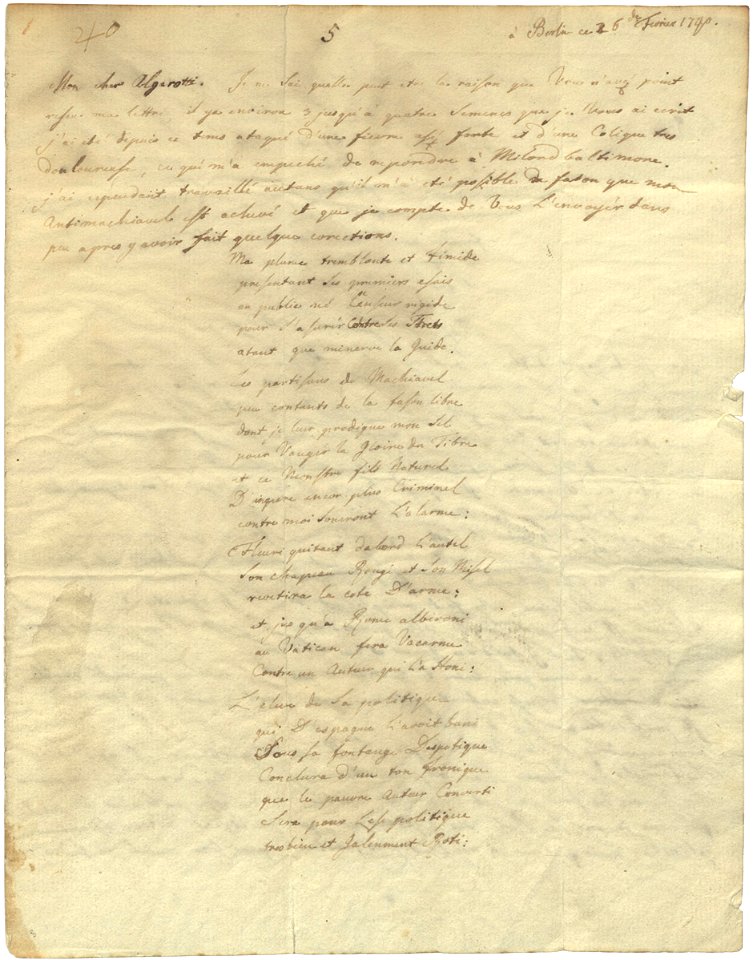 40
5
à Berlin ce 26 de Fevrier 1740.
Mon cher Algarotti. Je ne sai quelle peut etre la raison que Vous n'avez point
reseu ma lettre. il y a environ 3 jusqu'à quatre semenes que je Vous ai ecrit
j'ai eté depuis ce tems ataqué d'une fievre assé forte et d'une Colique tres
douloureuse, ce qui m'a empeché de repondre à Milord baltimore.
j'ai cependant travaillé autans qu'il m'a eté possible de fason que mon
Antimachiavele est achevé et que je compte de Vous L'envoyér dans
peu apres y avoir fait quelques corections.
Ma plume tremblente et timide
presentant ses premiers essais
au publiq né Censeur rigide
pour s'assurér Contre ses Trets
atant que minerve la Guide.
Les partisans de Machiavel
peu contants de la fason libre
dont je leur prodigue mon sel
pour Vanger la Gloire du Tibre
et ce Monstre fils Naturel
D'un pere encor plus Criminel
contre moi soneront L'alarme;
Fleuri quitant dabord L'autel
Son chapeau Rouge et son Misel
revetira la cote D'arme;
et jusqu'à Rome alberoni
au Vatican fera Vacarme
Contre un Auteur qui L'a Honi;
L'eleve de sa politique
qui D'espagne L'avoit bani
Sous sa fontange Despotique
Conclura d'un ton Yronique
que le pauvre Auteur Converti
Sera pour Lese politique
tres bien et Galenment Roti;